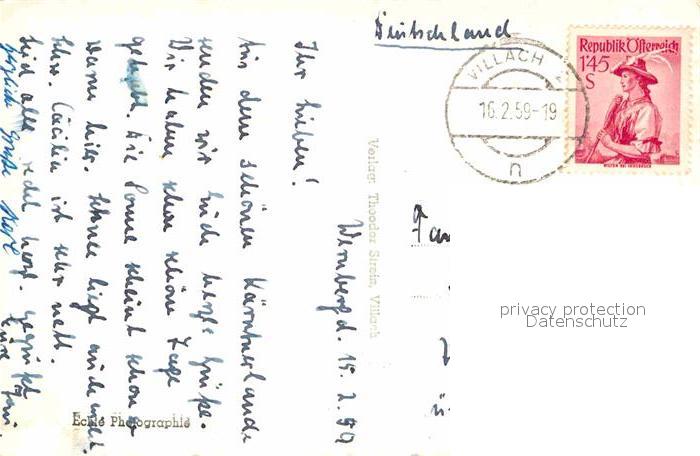 Deutschland
VILLACH 2
16.2.59-19
n
Republik Österreich
1'45
S
Vertrieb: Theodor Strein, Villach
Wernberg d. 15.2.59
Ihr Lieben!
Aus dem schönen Kärntnerlande
senden wir Euch herzl. Grüße.
Wir haben schon schöne Tage
gehabt. Die Sonne scheint schon
warm hier. Schnee liegt auch
Schw. Cäcilia ist sehr nett.
Seid alle recht herzl. gegrüßt
Eure
herzliche Grüße
Echte Photographie
privacy protection
Datenschutz